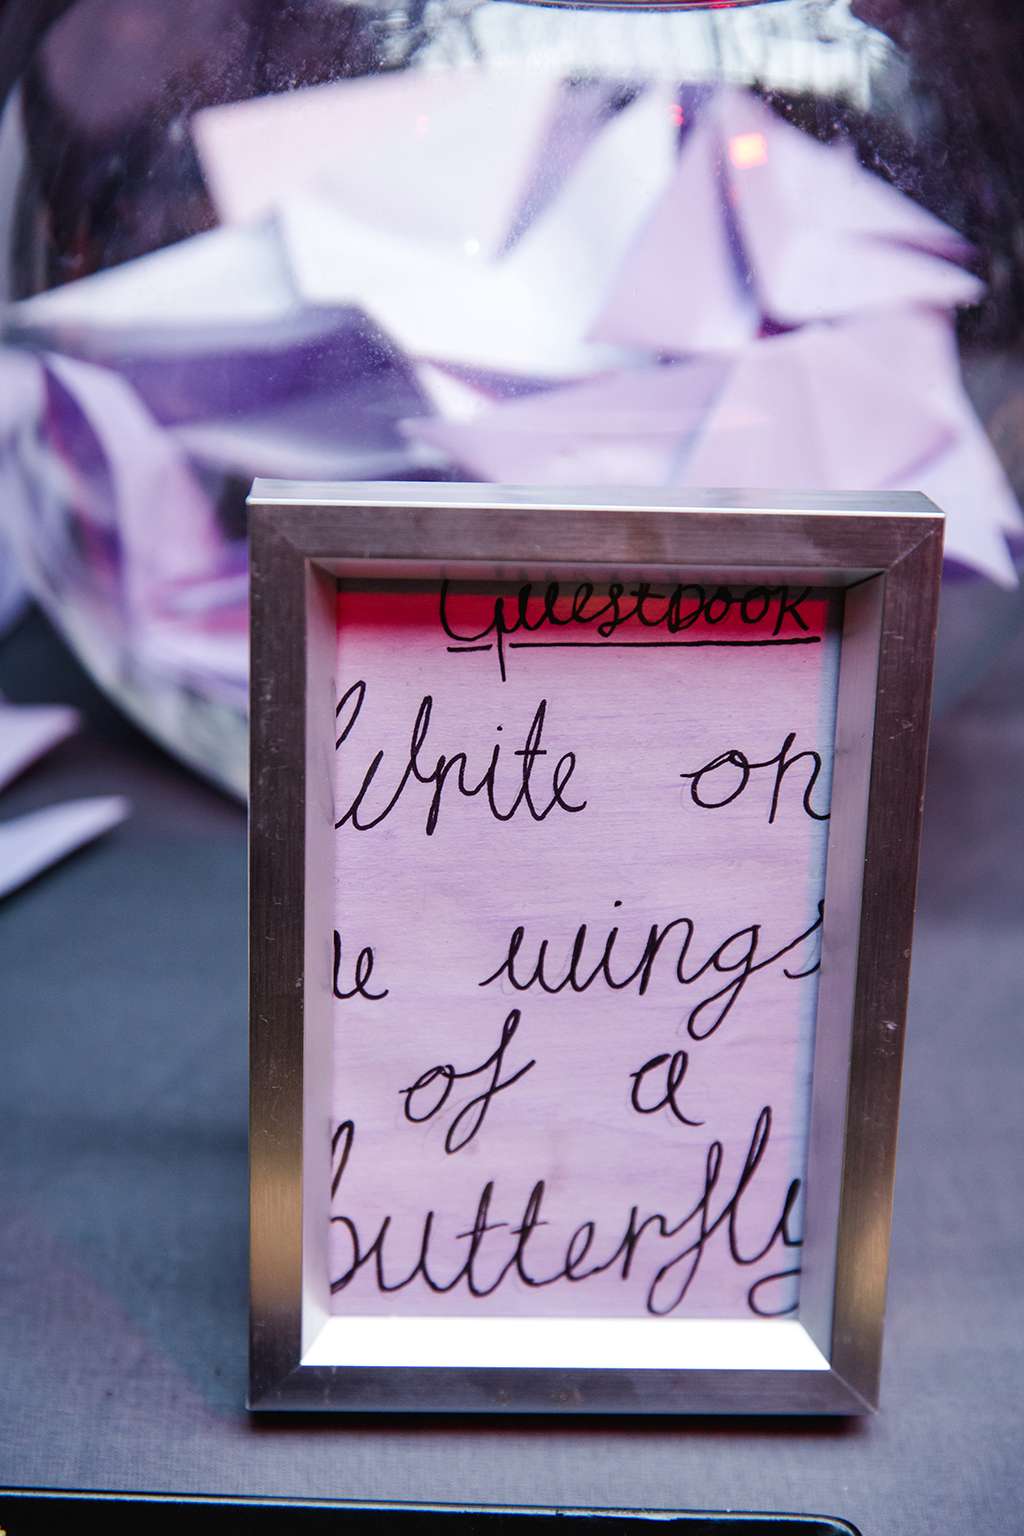 Guestbook
Write on
he wings
of a
butterfly